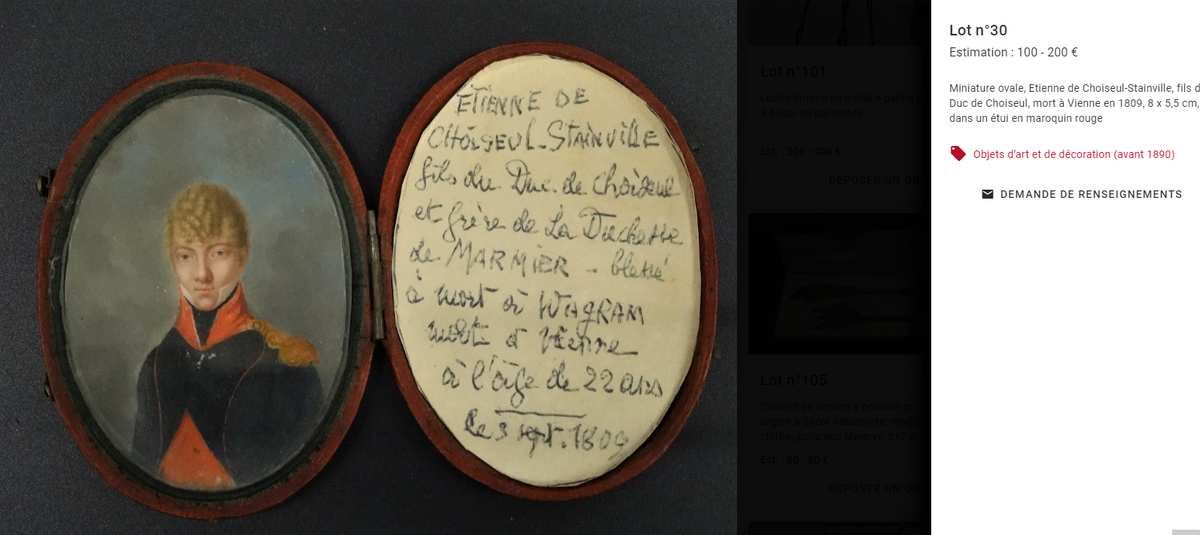 ETIENNE DE
CHOISEUL-STAINVILLE
fils du Duc de Choiseul
et frère de La Duchesse
de MARMIER - blessé
à mort à WAGRAM
mort à Vienne
à l'âge de 22 ans
le 3 sept. 1809
Lot n°101
Lot n°105
Lot n°30
Estimation : 100 - 200 €
Miniature ovale, Etienne de Choiseul-Stainville, fils d
Duc de Choiseul, mort à Vienne en 1809, 8 x 5,5 cm,
dans un étui en maroquin rouge
Objets d'art et de décoration (avant 1890)
DEMANDE DE RENSEIGNEMENTS